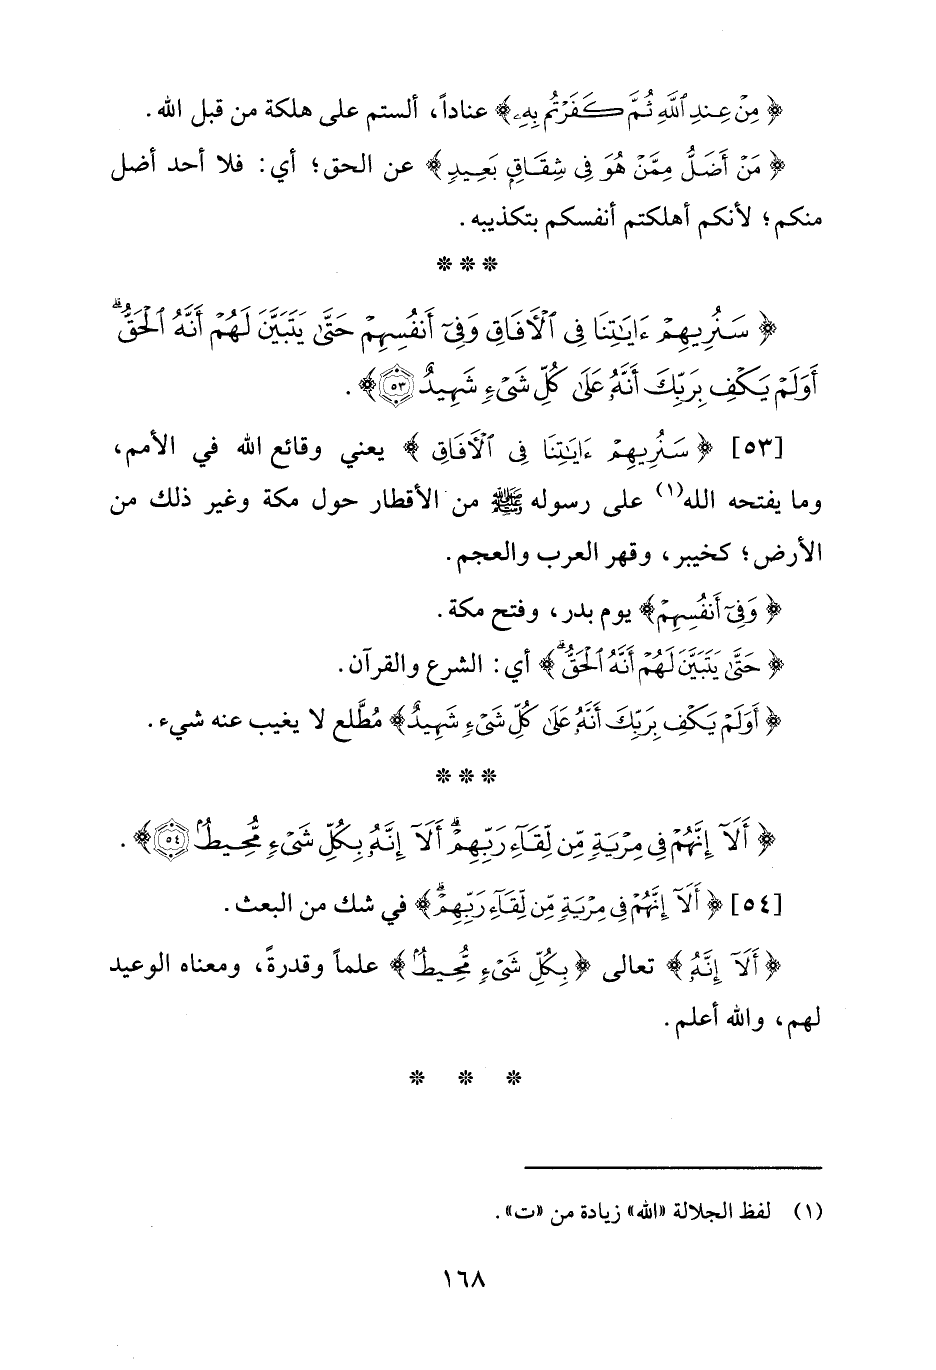 ﴿مِنْ عِندِ ٱللَّهِ ثُمَّ كَفَرْتُم بِهِۦ﴾ عناداً، ألستم على هلكة من قبل الله.
﴿مَنْ أَضَلُّ مِمَّنْ هُوَ فِى شِقَاقٍۭ بَعِيدٍ﴾ عن الحق؛ أي: فلا أحد أضل
منكم؛ لأنكم أهلكتم أنفسكم بتكذيبه.
* * *
﴿سَنُرِيهِمْ ءَايَٰتِنَا فِى ٱلْأٓفَاقِ وَفِىٓ أَنفُسِهِمْ حَتَّىٰ يَتَبَيَّنَ لَهُمْ أَنَّهُ ٱلْحَقُّ ۗ
أَوَلَمْ يَكْفِ بِرَبِّكَ أَنَّهُۥ عَلَىٰ كُلِّ شَىْءٍ شَهِيدٌ ٥٣﴾.
[٥٣] ﴿سَنُرِيهِمْ ءَايَٰتِنَا فِى ٱلْأٓفَاقِ﴾ يعني وقائع الله في الأمم،
وما يفتحه الله(١) على رسوله ﷺ من الأقطار حول مكة وغير ذلك من
الأرض؛ كخيبر، وقهر العرب والعجم.
﴿وَفِىٓ أَنفُسِهِمْ﴾ يوم بدر، وفتح مكة.
﴿حَتَّىٰ يَتَبَيَّنَ لَهُمْ أَنَّهُ ٱلْحَقُّ ۗ﴾ أي: الشرع والقرآن.
﴿أَوَلَمْ يَكْفِ بِرَبِّكَ أَنَّهُۥ عَلَىٰ كُلِّ شَىْءٍ شَهِيدٌ﴾ مُطَّلع لا يغيب عنه شيء.
* * *
﴿أَلَآ إِنَّهُمْ فِى مِرْيَةٍ مِّن لِّقَآءِ رَبِّهِمْ ۗ أَلَآ إِنَّهُۥ بِكُلِّ شَىْءٍ مُّحِيطٌۢ ٥٤﴾.
[٥٤] ﴿أَلَآ إِنَّهُمْ فِى مِرْيَةٍ مِّن لِّقَآءِ رَبِّهِمْ ۗ﴾ في شك من البعث.
﴿أَلَآ إِنَّهُۥ﴾ تعالى ﴿بِكُلِّ شَىْءٍ مُّحِيطٌۢ﴾ علماً وقدرةً، ومعناه الوعيد
لهم، والله أعلم.
* * *
(١) لفظ الجلالة «الله» زيادة من «ت».
١٦٨